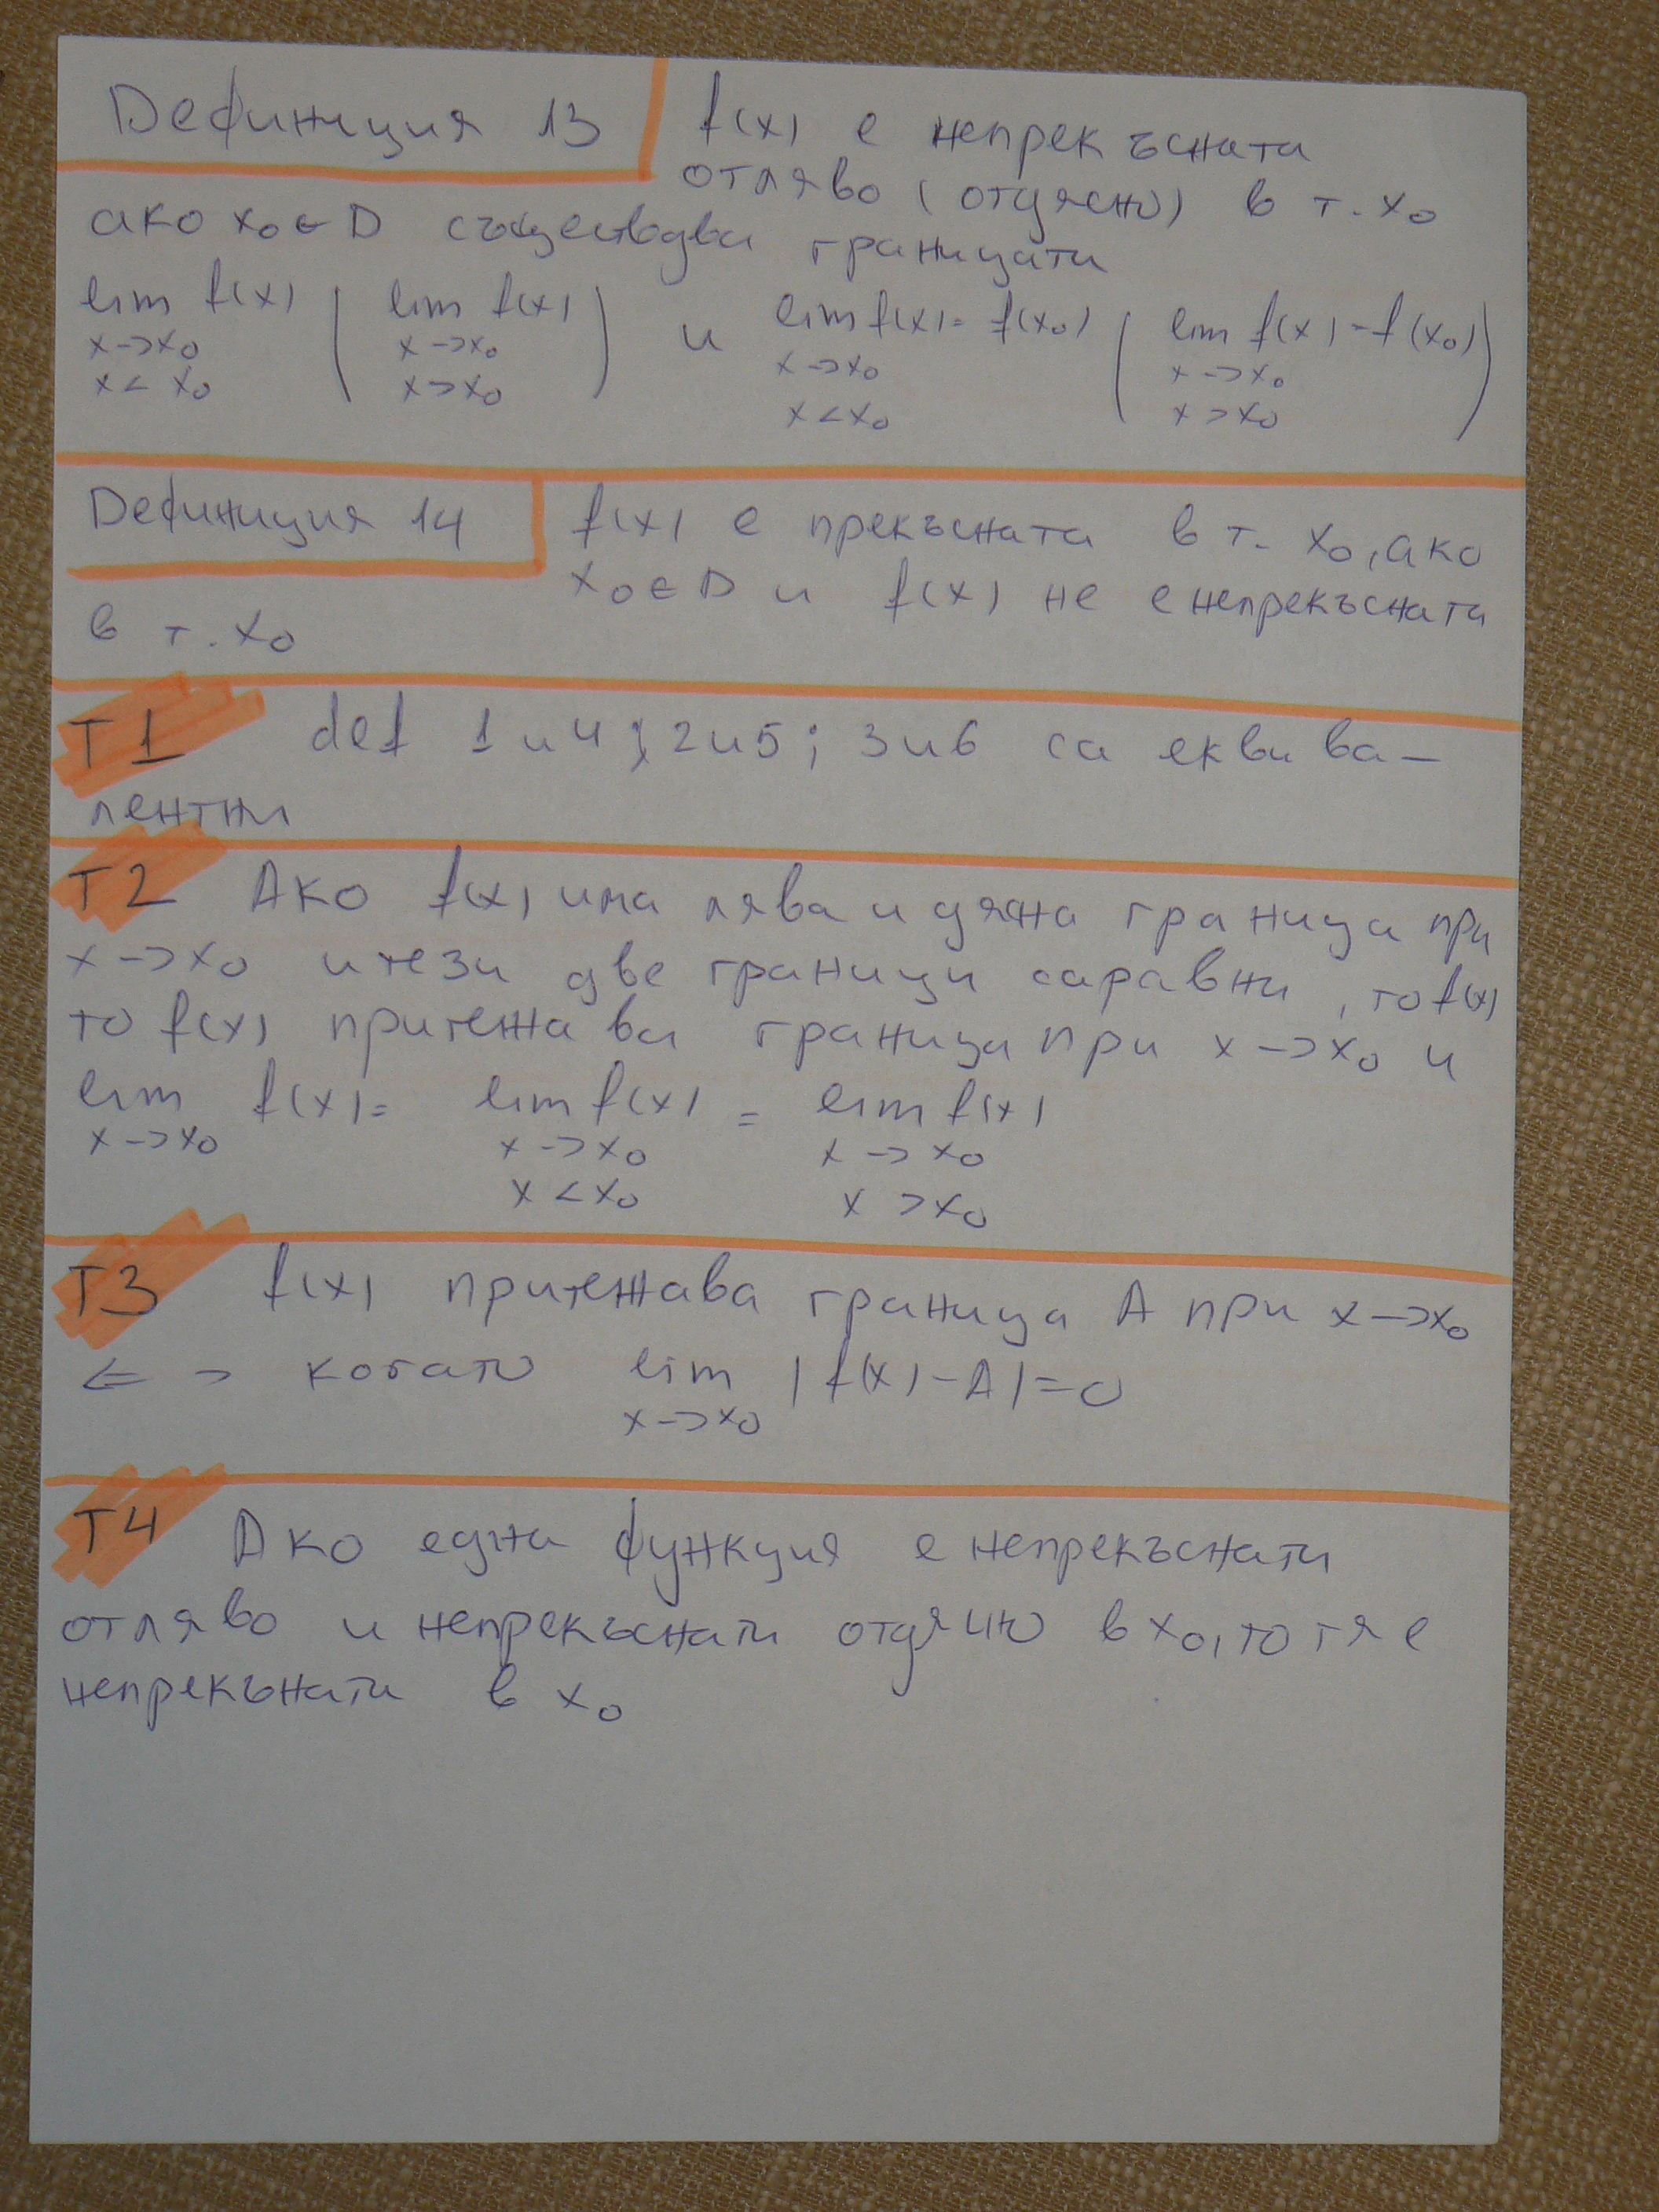 Дефиниция 13 f(x) е непрекъсната
отляво (отдясно) в т. x₀
ако x₀ ∈ D съществува границата
lim f(x) ( lim f(x) ) и lim f(x) = f(x₀) ( lim f(x) = f(x₀) )
x->x₀ x->x₀ x->x₀ x->x₀
x < x₀ x > x₀ x < x₀ x > x₀
Дефиниция 14 f(x) е прекъсната в т. x₀, ако
x₀ ∈ D и f(x) не е непрекъсната
в т. x₀
T1 def 1 и 4; 2 и 5; 3 и 6 са еквива-
лентни
T2 Ако f(x) има лява и дясна граница при
x->x₀ и тези две граници са равни, то f(x)
то f(x) притежава граница при x->x₀ и
lim f(x) = lim f(x) = lim f(x)
x->x₀ x->x₀ x->x₀
x < x₀ x > x₀
T3 f(x) притежава граница A при x->x₀
<=> когато lim |f(x) - A| = 0
x->x₀
T4 Ако една функция е непрекъсната
отляво и непрекъсната отдясно в x₀, то тя е
непрекъната в x₀